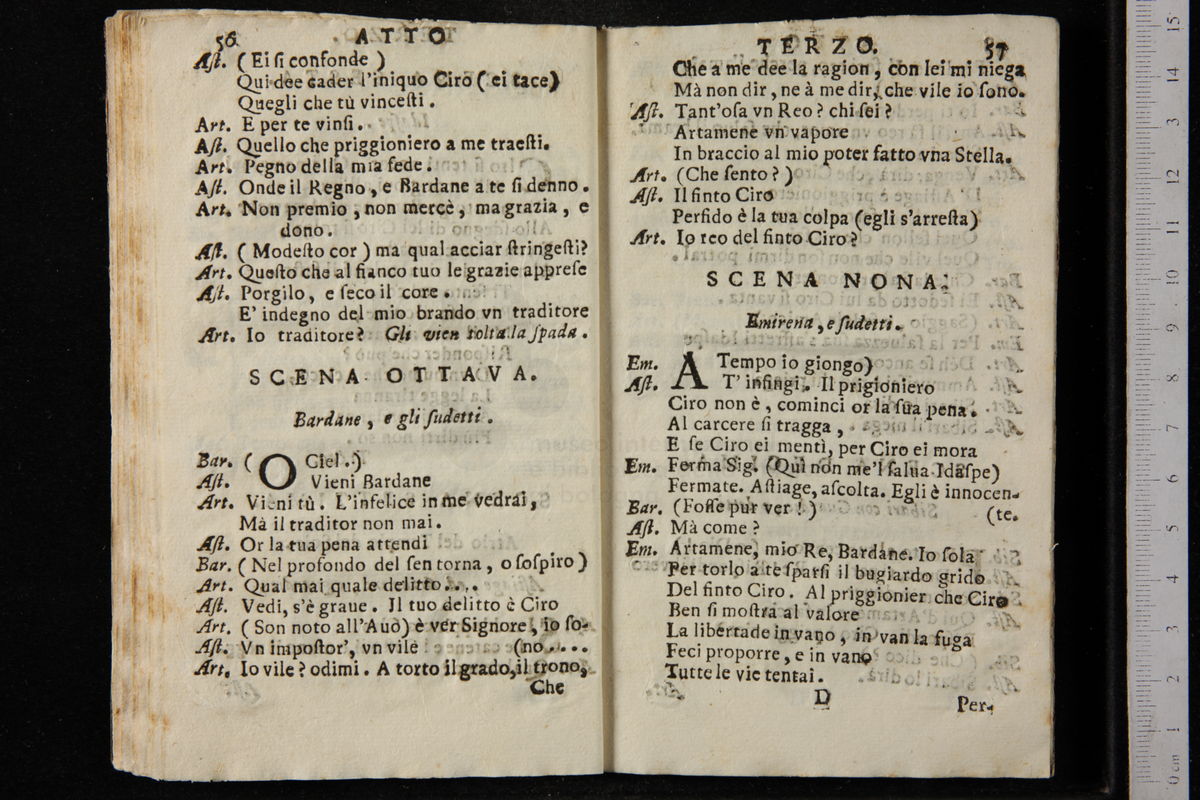 56 ATTO
Aſt. (Ei ſi confonde)
Qui dee cader l'iniquo Ciro (ei tace)
Quegli che tù vinceſti.
Art. E per te vinſi.
Aſt. Quello che priggioniero a me traeſti.
Art. Pegno della mia fede.
Aſt. Onde il Regno, e Bardane a te ſi denno.
Art. Non premio, non mercè, ma grazia, e
dono.
Aſt. (Modeſto cor) ma qual acciar ſtringeſti?
Art. Queſto che al fianco tuo le grazie appreſe
Aſt. Porgilo, e ſeco il core.
E' indegno del mio brando vn traditore
Art. Io traditore? Gli vien tolta la ſpada.
SCENA OTTAVA.
Bardane, e gli ſudetti.
Bar. (O Ciel.)
Aſt. Vieni Bardane
Art. Vieni tù. L'infelice in me vedrai,
Mà il traditor non mai.
Aſt. Or la tua pena attendi
Bar. (Nel profondo del ſen torna, o ſoſpiro)
Art. Qual mai quale delitto....
Aſt. Vedi, s'è graue. Il tuo delitto è Ciro
Art. (Son noto all'Auo) è ver Signore, io ſo-
Aſt. Vn impoſtor', vn vile (no....
Art. Io vile? odimi. A torto il grado, il trono,
Che
TERZO. 57
Che a me dee la ragion, con lei mi niega
Mà non dir, ne à me dir, che vile io ſono.
Aſt. Tant'oſa vn Reo? chi ſei?
Artamene vn vapore
In braccio al mio poter fatto vna Stella.
Art. (Che ſento?)
Aſt. Il finto Ciro
Perfido è la tua colpa (egli s'arreſta)
Art. Io reo del finto Ciro?
SCENA NONA.
Emirena, e ſudetti.
Em. A Tempo io giongo)
Aſt. T' infingi. Il prigioniero
Ciro non è, cominci or la ſua pena.
Al carcere ſi tragga,
E ſe Ciro ei mentì, per Ciro ei mora
Em. Ferma Sig. (Qui non me'l ſalua Idaſpe)
Fermate. Aſtiage, aſcolta. Egli è innocen-
Bar. (Foſſe pur ver!) (te.
Aſt. Mà come?
Em. Artamene, mio Re, Bardane. Io ſola
Per torlo a te ſparſi il bugiardo grido
Del finto Ciro. Al priggionier che Ciro
Ben ſi moſtra al valore
La libertade in vano, in van la fuga
Feci proporre, e in vano
Tutte le vie tentai.
D Per-